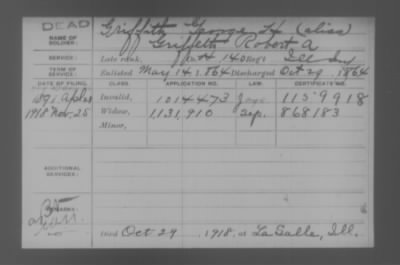 DEAD
NAME OF SOLDIER:
Griffith George H (alias)
Griffith Robert A
SERVICE:
Late rank, 140 Reg't Ill Inf
TERM OF SERVICE:
Enlisted May 14 1864 Discharged Oct 29, 1864
DATE OF FILING. CLASS. APPLICATION NO. LAW. CERTIFICATE NO.
1891 Invalid, 1014473 1159918
1918 Nov. 25 Widow, 1,131,910 868183
Minor,
ADDITIONAL SERVICES:
REMARKS:
Died Oct 29, 1918, at LaSalle, Ill.